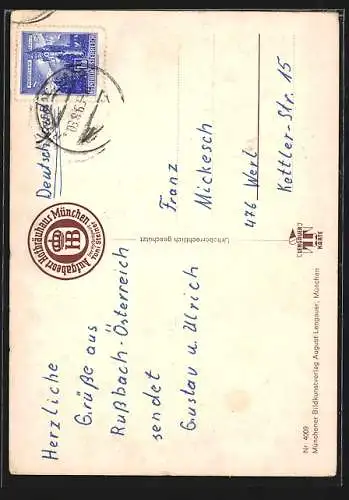 Herzliche
Grüße aus
Rußbach-Österreich
sendet
Gustav u. Ulrich
Aufgabeort Hofbräuhaus München
HB
Urheberrechtlich geschützt
Deutschland
Franz
Mickesch
476 Werl
Kettler-Str. 15
LENGAUER
KARTE
Nr. 4069
Münchener Bildkunstverlag August Lengauer, München